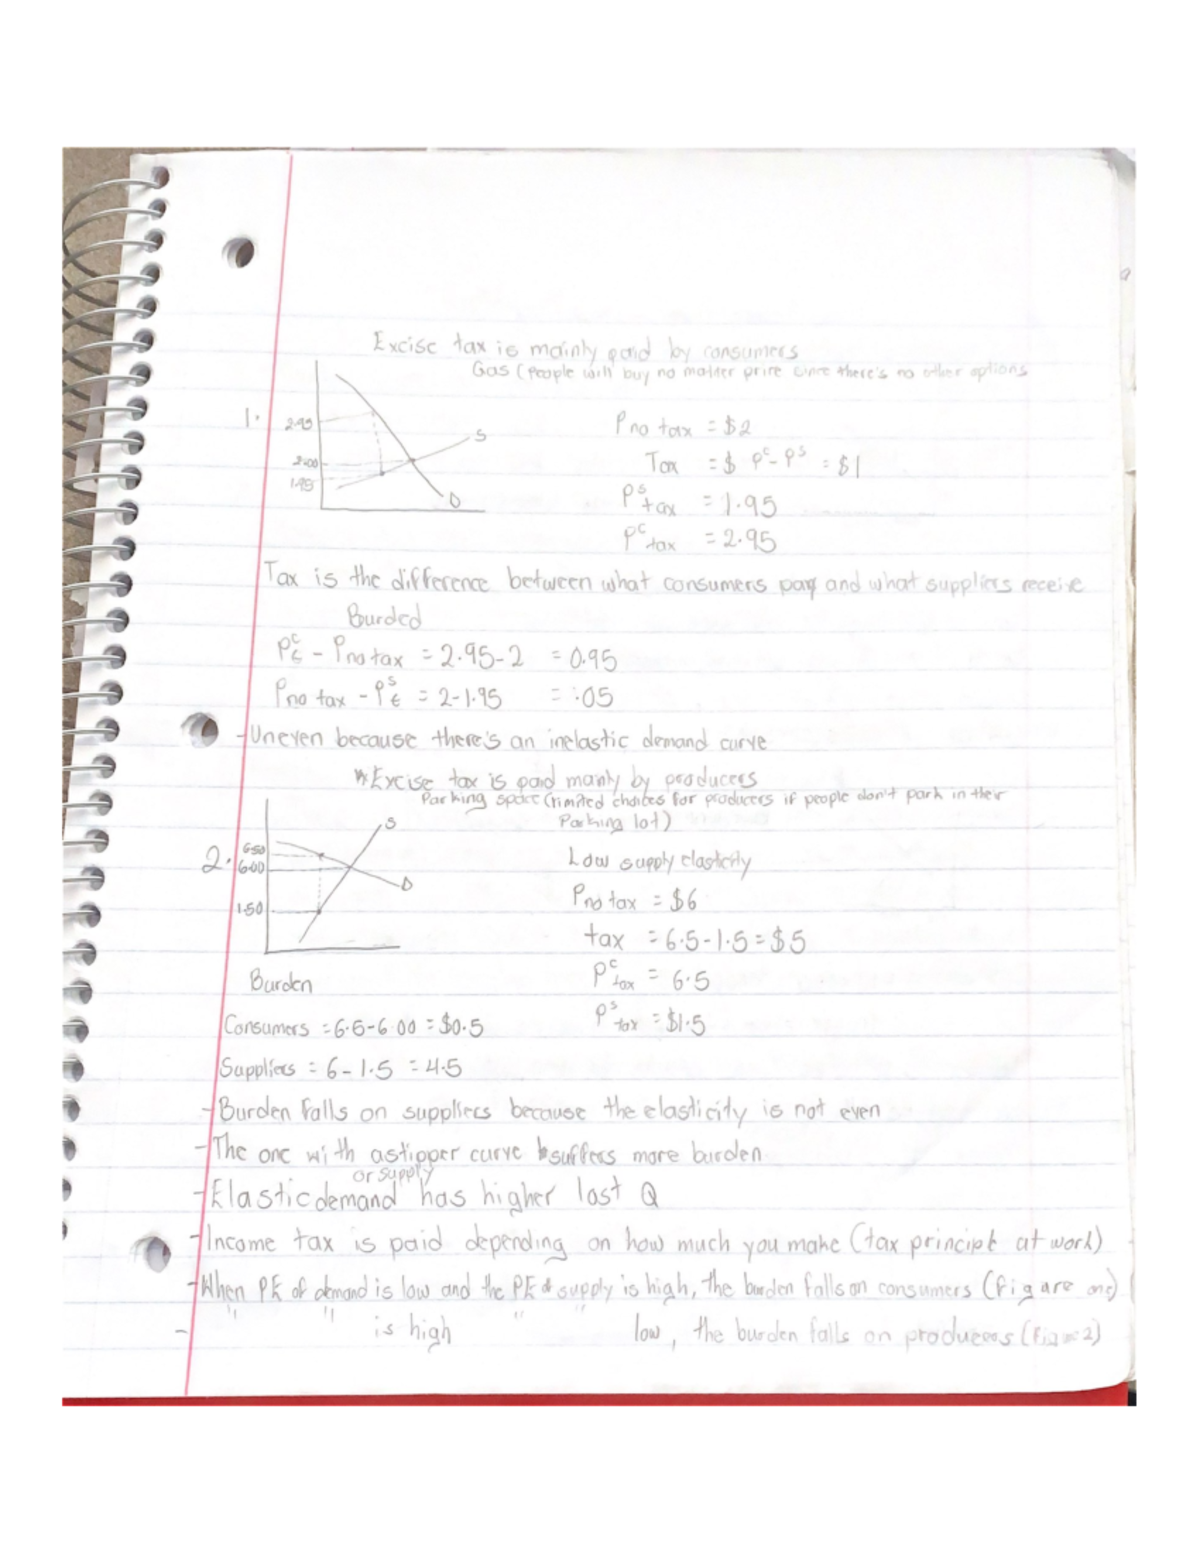 Excise tax is mainly paid by consumers
Gas (people will buy no matter price since there's no other options
1.
2.95
2.00
1.95
S
D
P no tax = $2
Tax = $ P^c - P^s = $1
P^s tax = 1.95
P^c tax = 2.95
Tax is the difference between what consumers pay and what suppliers receive
Burded
P^c t - P no tax = 2.95-2 = 0.95
P no tax - P^s t = 2-1.95 = .05
-Uneven because there's an inelastic demand curve
*Excise tax is paid mainly by producers
Parking space (limited choices for producers if people don't park in their
Parking lot)
2.
6.50
6.00
1.50
S
D
Low supply elasticity
P no tax = $6
tax = 6.5-1.5 = $5
P^c tax = 6.5
P^s tax = $1.5
Burden
Consumers = 6.5-6.00 = $0.5
Suppliers = 6-1.5 = 4.5
-Burden falls on suppliers because the elasticity is not even
-The one with a stipper curve suffers more burden
or supply
-Elastic demand has higher lost Q
-Income tax is paid depending on how much you make (tax principle at work)
-When PE of demand is low and the PE of supply is high, the burden falls on consumers (figure one)
- " " is high " " low, the burden falls on producers (Fig 2)